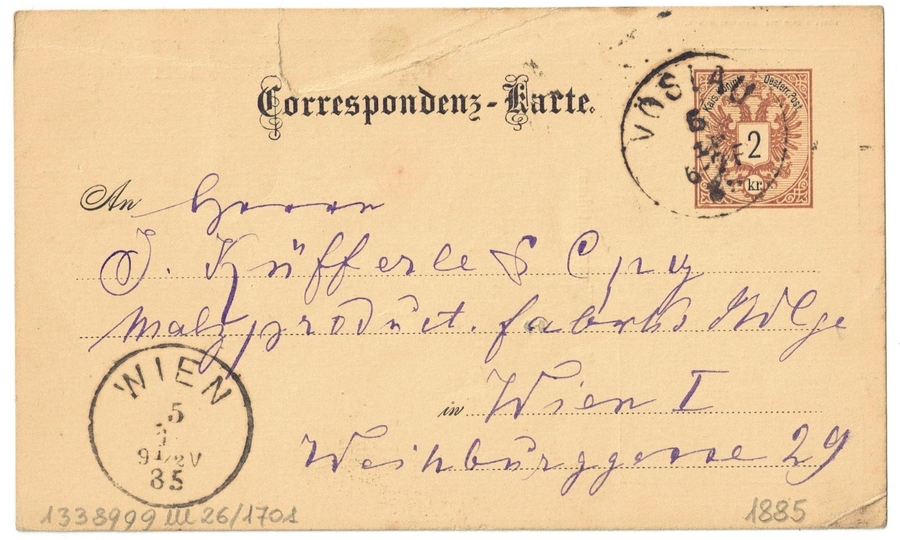 Correspondenz-Karte.
VÖSLAU
6
Kais. Königl. Oesterr. Post
2
kr.
An Herrn
J. Küfferle & Cpy
Malzproduct. fabriks Ndlge
in Wien I
Weihburggasse 29
WIEN
5
9 1/2 V
85
1338999 III 26/1701
1885